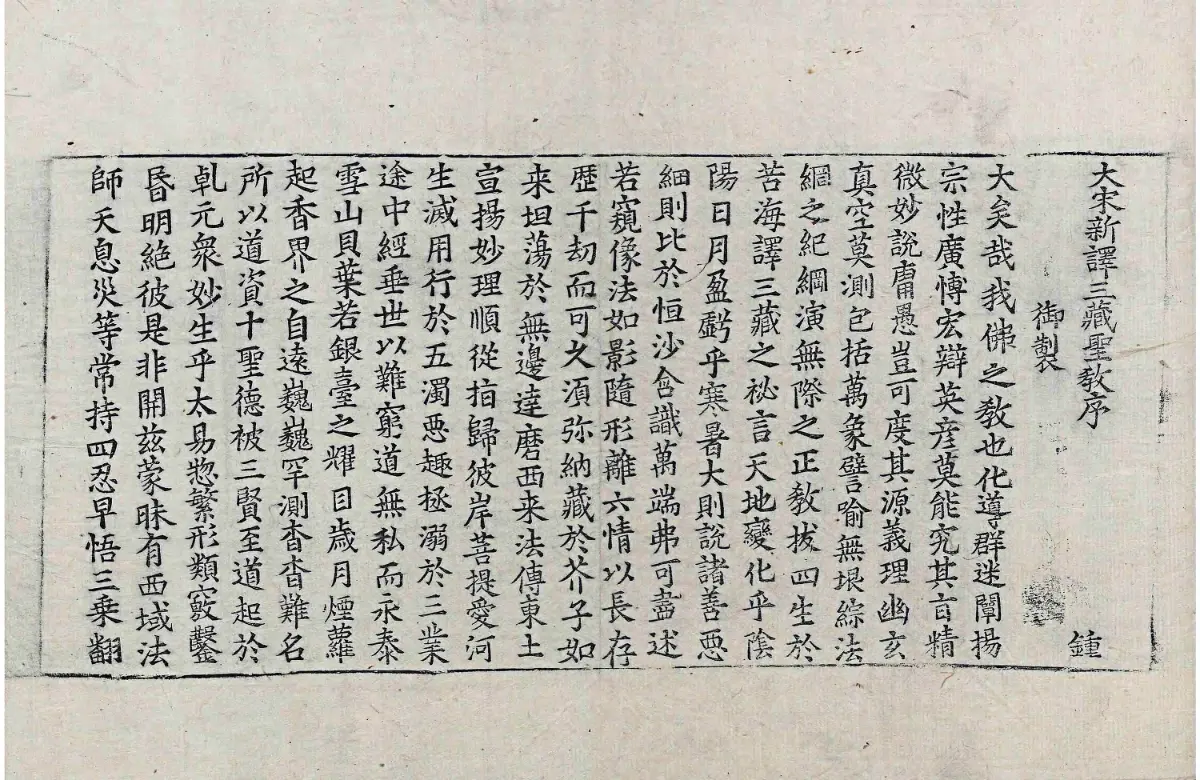 大宋新譯三藏聖教序
鍾
御製
大矣哉我佛之教也化導群迷闡揚
宗性廣愽宏辯英彦莫能究其㫖精
微妙說庸愚豈可度其源義理幽玄
真空莫測包括萬象譬喻無垠綜法
綱之紀綱演無際之正教拔四生於
苦海譯三藏之祕言天地變化乎陰
陽日月盈虧乎寒暑大則說諸善惡
細則比於恒沙含識萬端弗可盡述
若窺像法如影隨形離六情以長存
歷千刧而可久湏弥納藏於芥子如
来坦蕩於無邊達磨西来法傳東土
宣揚妙理順從指歸彼岸菩提愛河
生滅用行於五濁惡趣拯溺於三業
途中經垂世以難窮道無私而永泰
雪山貝葉若銀臺之耀目歲月煙蘿
起香界之自逺巍巍罕測杳杳難名
所以道資十聖德被三賢至道起於
乹元衆妙生乎太易惣繁形類竅鑿
昬明絶彼是非開兹蒙昧有西域法
師天息災等常持四忍早悟三乗翻